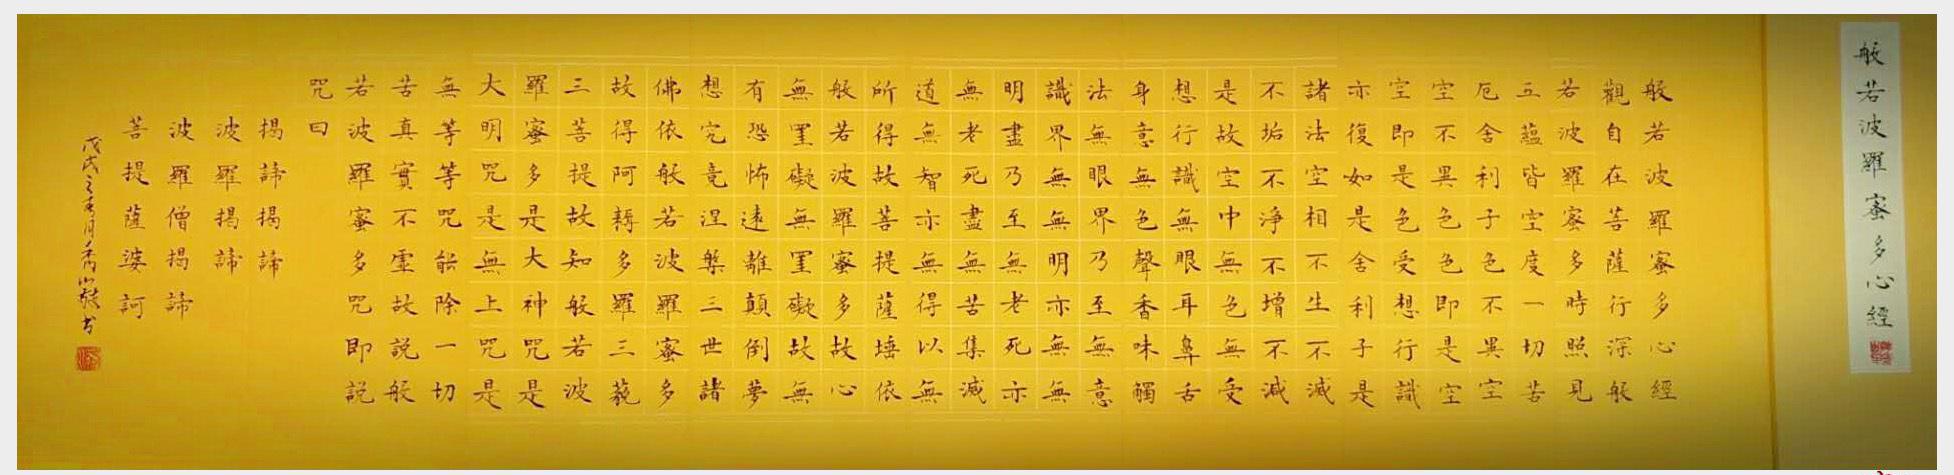 般若波羅蜜多心經
般若波羅蜜多心經
觀自在菩薩行深般
若波羅蜜多時照見
五蘊皆空度一切苦
厄舍利子色不異空
空不異色色即是空
空即是色受想行識
亦復如是舍利子是
諸法空相不生不滅
不垢不淨不增不減
是故空中無色無受
想行識無眼耳鼻舌
身意無色聲香味觸
法無眼界乃至無意
識界無無明亦無無
明盡乃至無老死亦
無老死盡無苦集滅
道無智亦無得以無
所得故菩提薩埵依
般若波羅蜜多故心
無罣礙無罣礙故無
有恐怖遠離顛倒夢
想究竟涅槃三世諸
佛依般若波羅蜜多
故得阿耨多羅三藐
三菩提故知般若波
羅蜜多是大神咒是
大明咒是無上咒是
無等等咒能除一切
苦真實不虛故說般
若波羅蜜多咒即說
咒曰
揭諦揭諦
波羅揭諦
波羅僧揭諦
菩提薩婆訶
戊戌之春月书